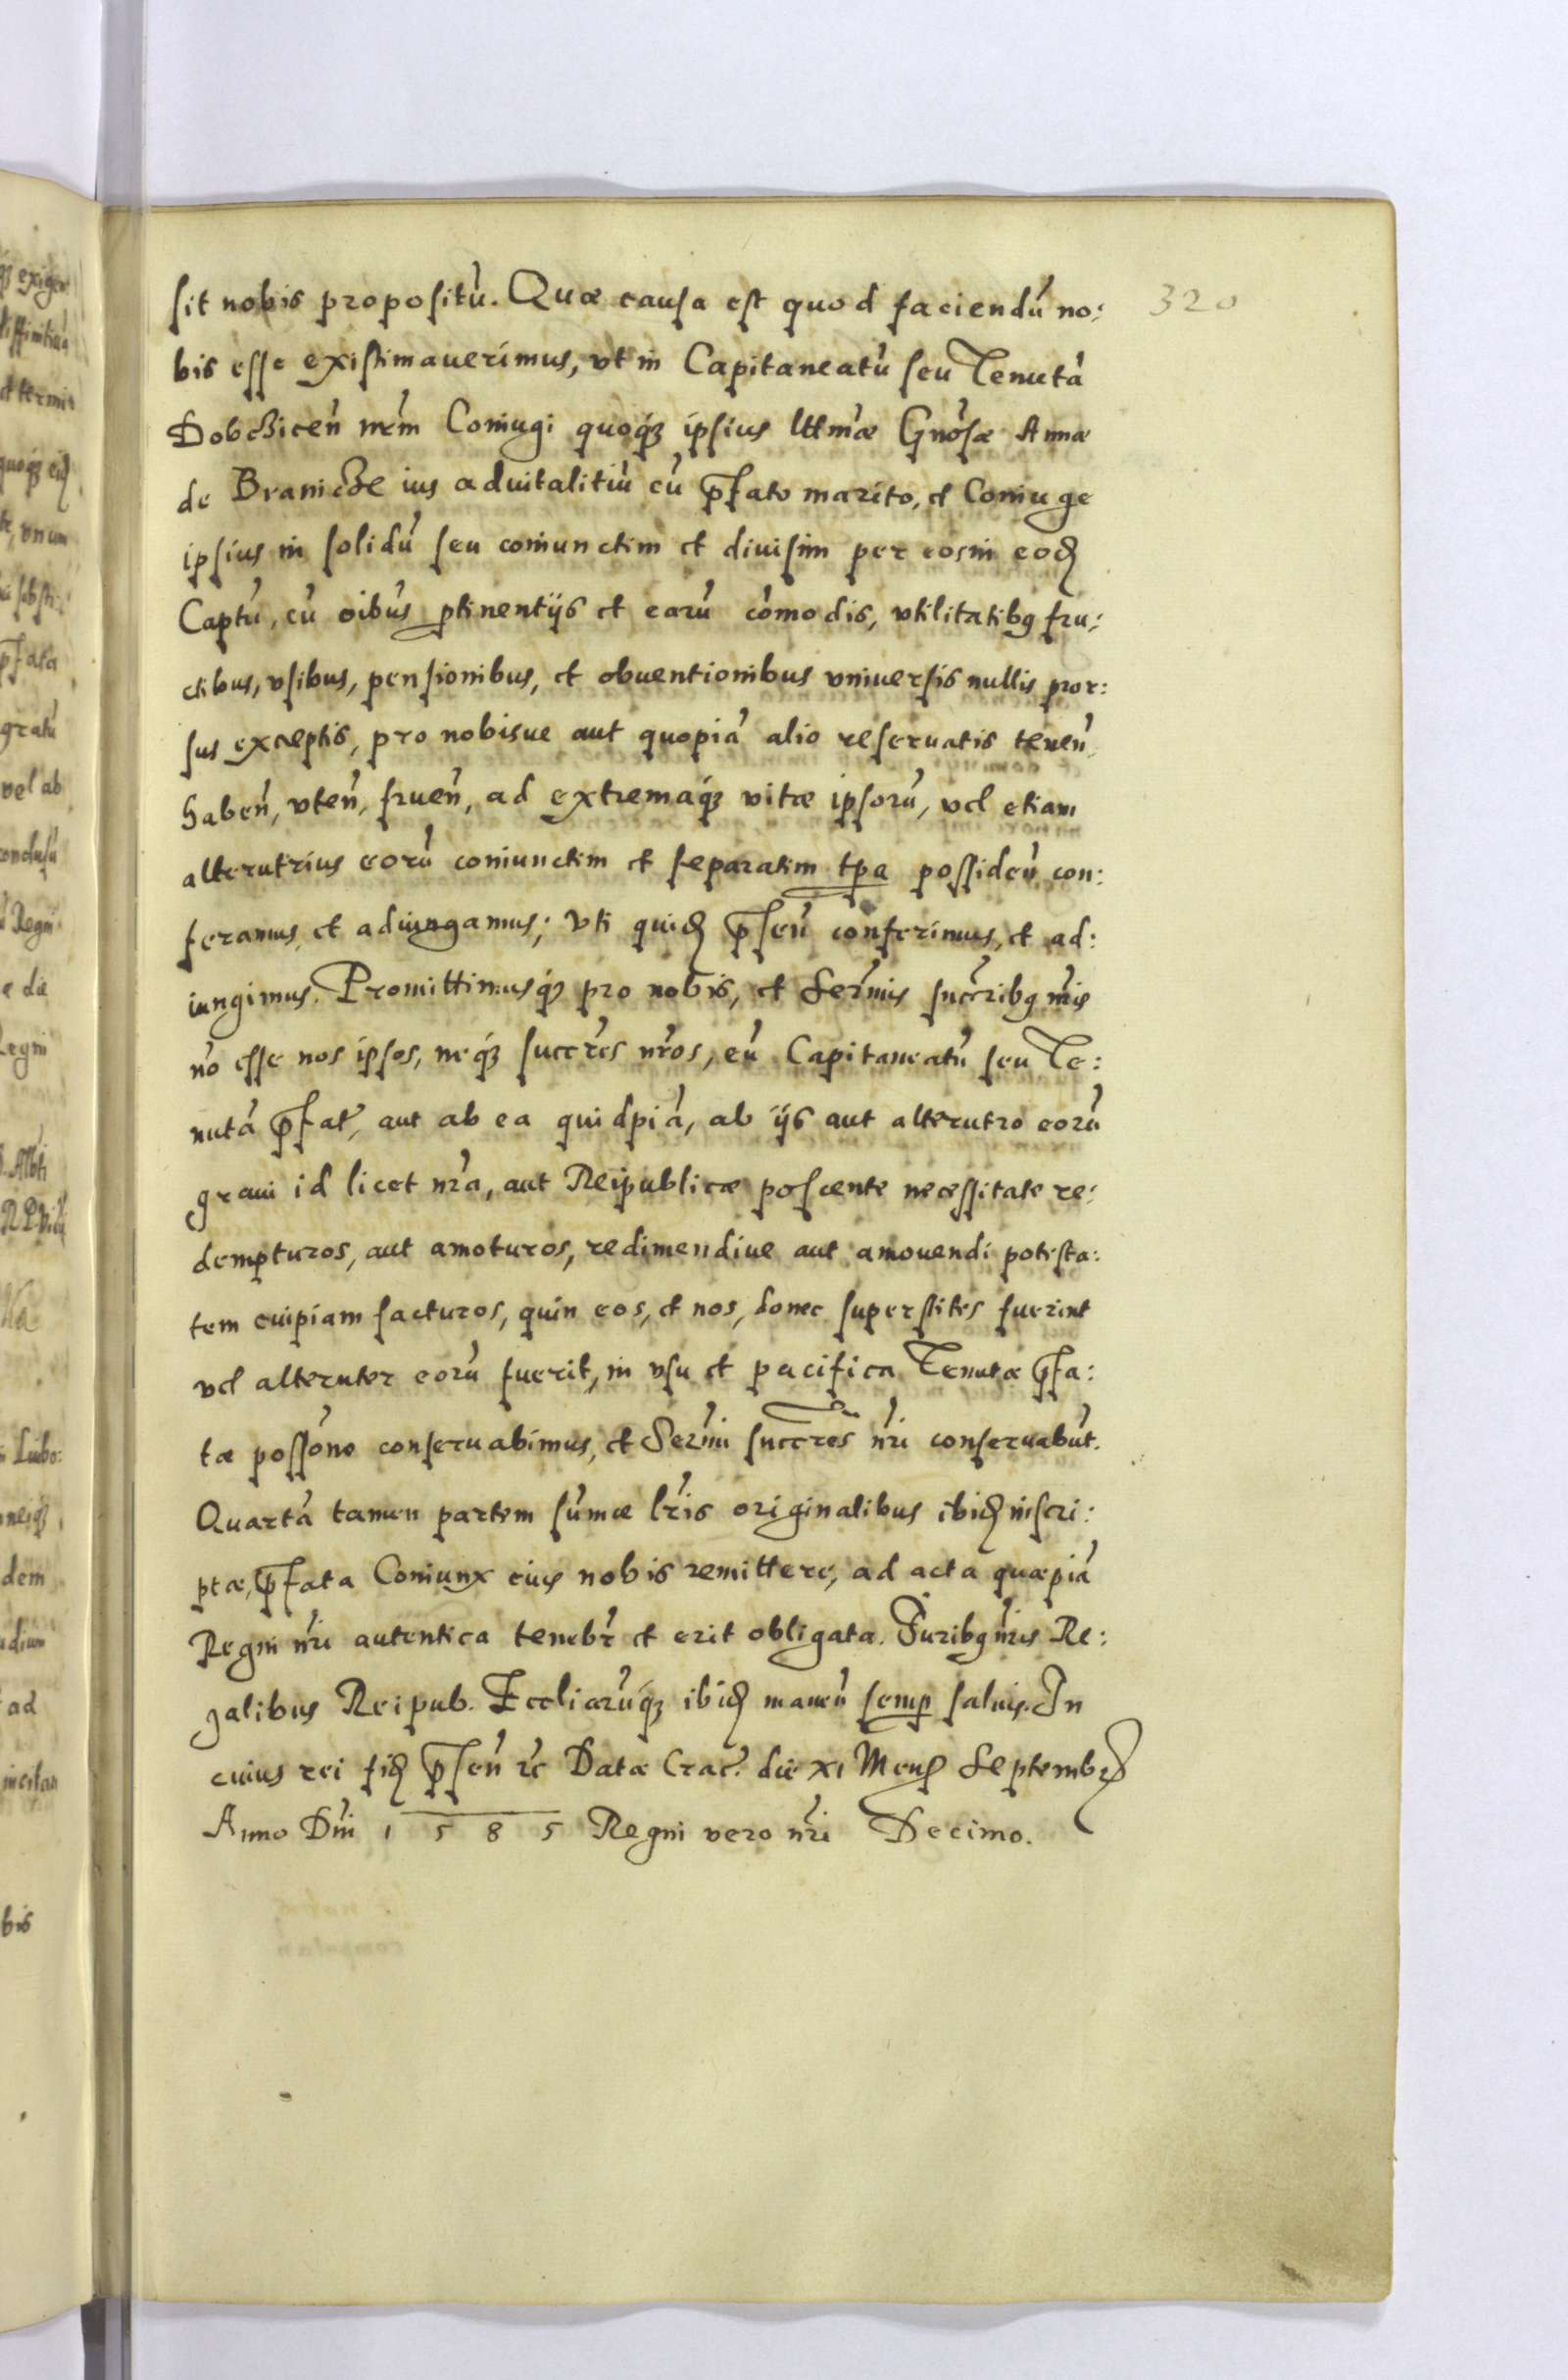 320
sit nobis propositũ. Quæ causa est quod faciendũ no:
bis esse existimauerimus, vt in Capitaneatũ seu Tenutã
Dobczicen̄ Coniugi quoq́ ipsius Gnõsæ Annæ
de Braniczke ius aduitalitiũ cũ p̄fato marito, et Coniuge
ipsius in solidũ seu coniunctim et diuisim per eos in eod
Captũ, cũ oĩbus ptinentijs et earũ cõmodis, vtilitatibq fru:
ctibus, vsibus, pensionibus, et obuentionibus vniuersis nullis pror:
sus exceptis, pro nobisue aut quopiã alio reseruatis tenen̄
haben̄, vten̄, fruen̄, ad extremaq́ vitæ ipsorũ, vel etiam
alterutrius eorũ coniunctim et separatim tpa possiden̄ con:
feramus et adiungamus; Vti quid p̄sen̄ conferimus, et ad:
iungimus. Promittimusq́ pro nobis, et Serm̃is succr̃ibq nr̃is
nõ esse nos ipsos, neq́ succr̃es nr̃os, eũ Capitaneatũ seu Te:
nutã p̄fat, aut ab ea quidpiã, ab ijs aut alterutro eorũ
graui id licet nr̃a, aut Reipublicæ poscente necessitate re:
dempturos, aut amoturos, redimendiue aut amouendi potesta:
tem cuipiam facturos, quin eos, et nos, donec superstites fuerint
vel alteruter eorũ fuerit, in vsu et pacifica Tenutæ p̄fa:
tæ possõne conseruabimus, et Serm̃i succr̃es nr̃i conseruabũt.
Quartã tamen partem sũmæ lr̃is originalibus ibid inscri:
ptæ, p̄fata Coniunx eius nobis remittere, ad acta quæpiã
Regni nr̃i autentica tenebr̃ et erit obligata. Iuribq nr̃is Re:
galibus Reipub. Eccliarũq́ ibid manen̄ semp saluis. In
cuius rei fid p̄sen̄ rc̃ Datæ Crac. die XI Mens Septembr
Anno Dñi 1585 Regni vero nr̃i Decimo.